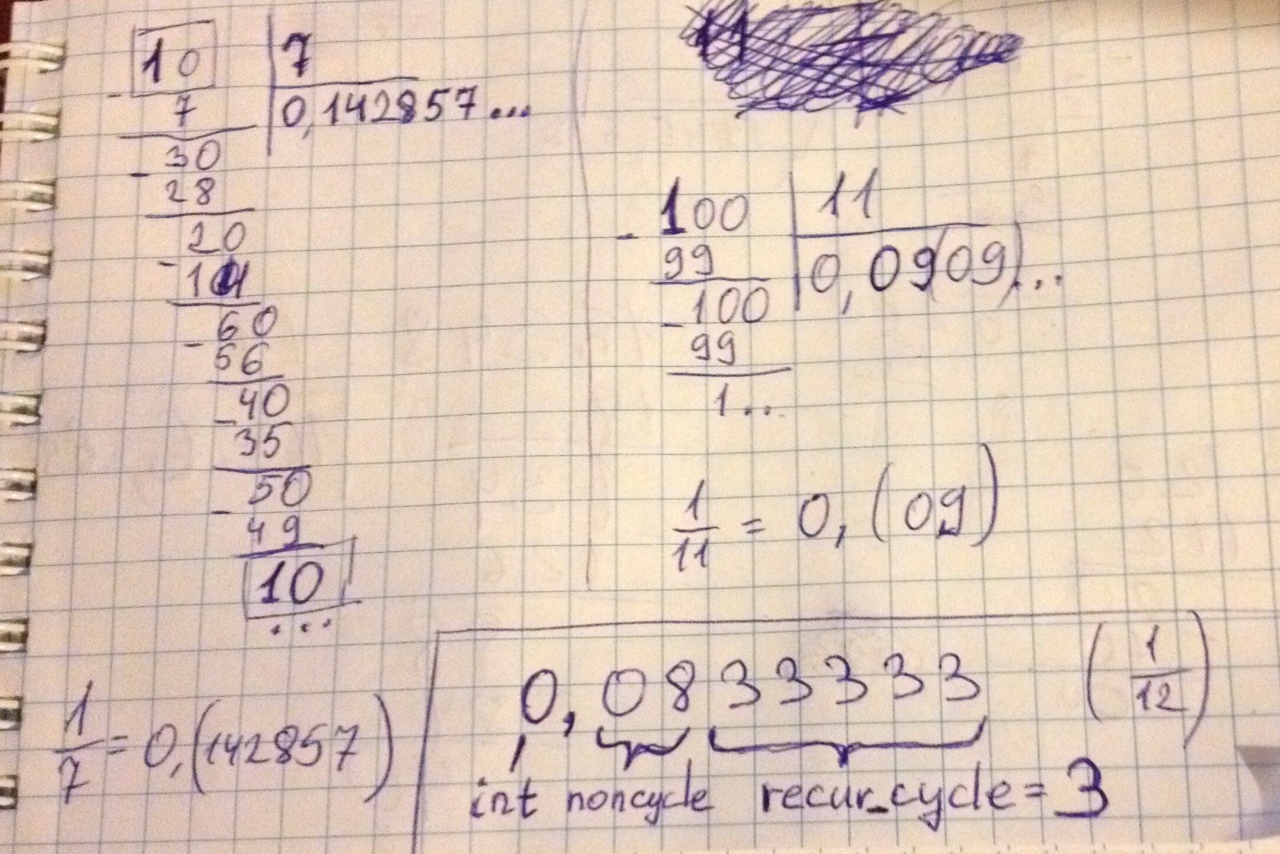 10 7
- 7 0,142857...
30
- 28
20
- 14
60
- 56
40
- 35
50
- 49
10
...
1/7 = 0,(142857)
11
100 11
- 99 0,09(09)...
100
- 99
1..
1/11 = 0,(09)
0,0833333 (1/12)
int noncycle recur_cycle = 3